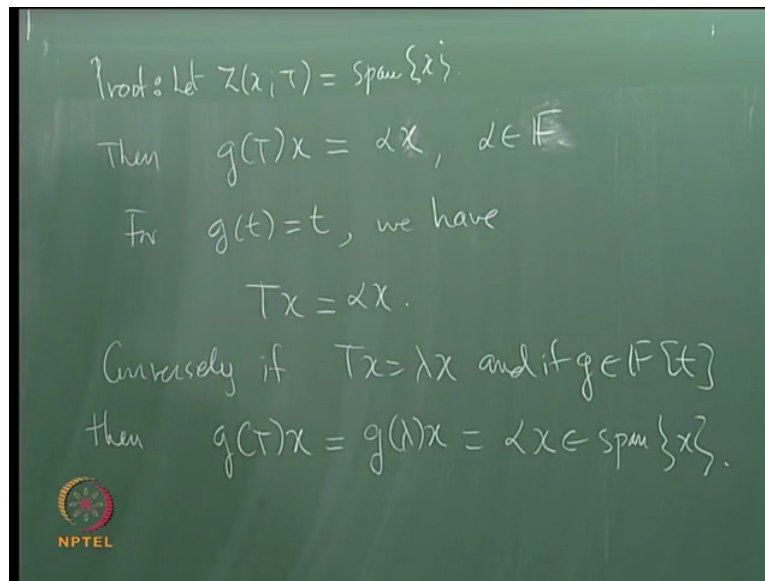 Proof: Let Z(x;T) = span{x}.
Then g(T)x = αx, α∈F
For g(t)=t, we have
Tx = αx.
Conversely if Tx=λx and if g∈F[t]
then g(T)x = g(λ)x = αx ∈ span{x}.
NPTEL